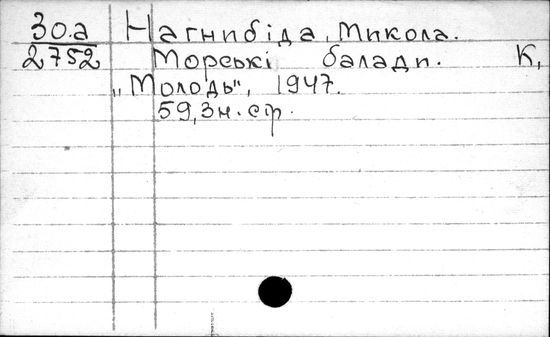 Зо.а Нагнибіда, Микола.
2752 Морські балади. К,
„Молодь", 1947.
59, 3н. стр.